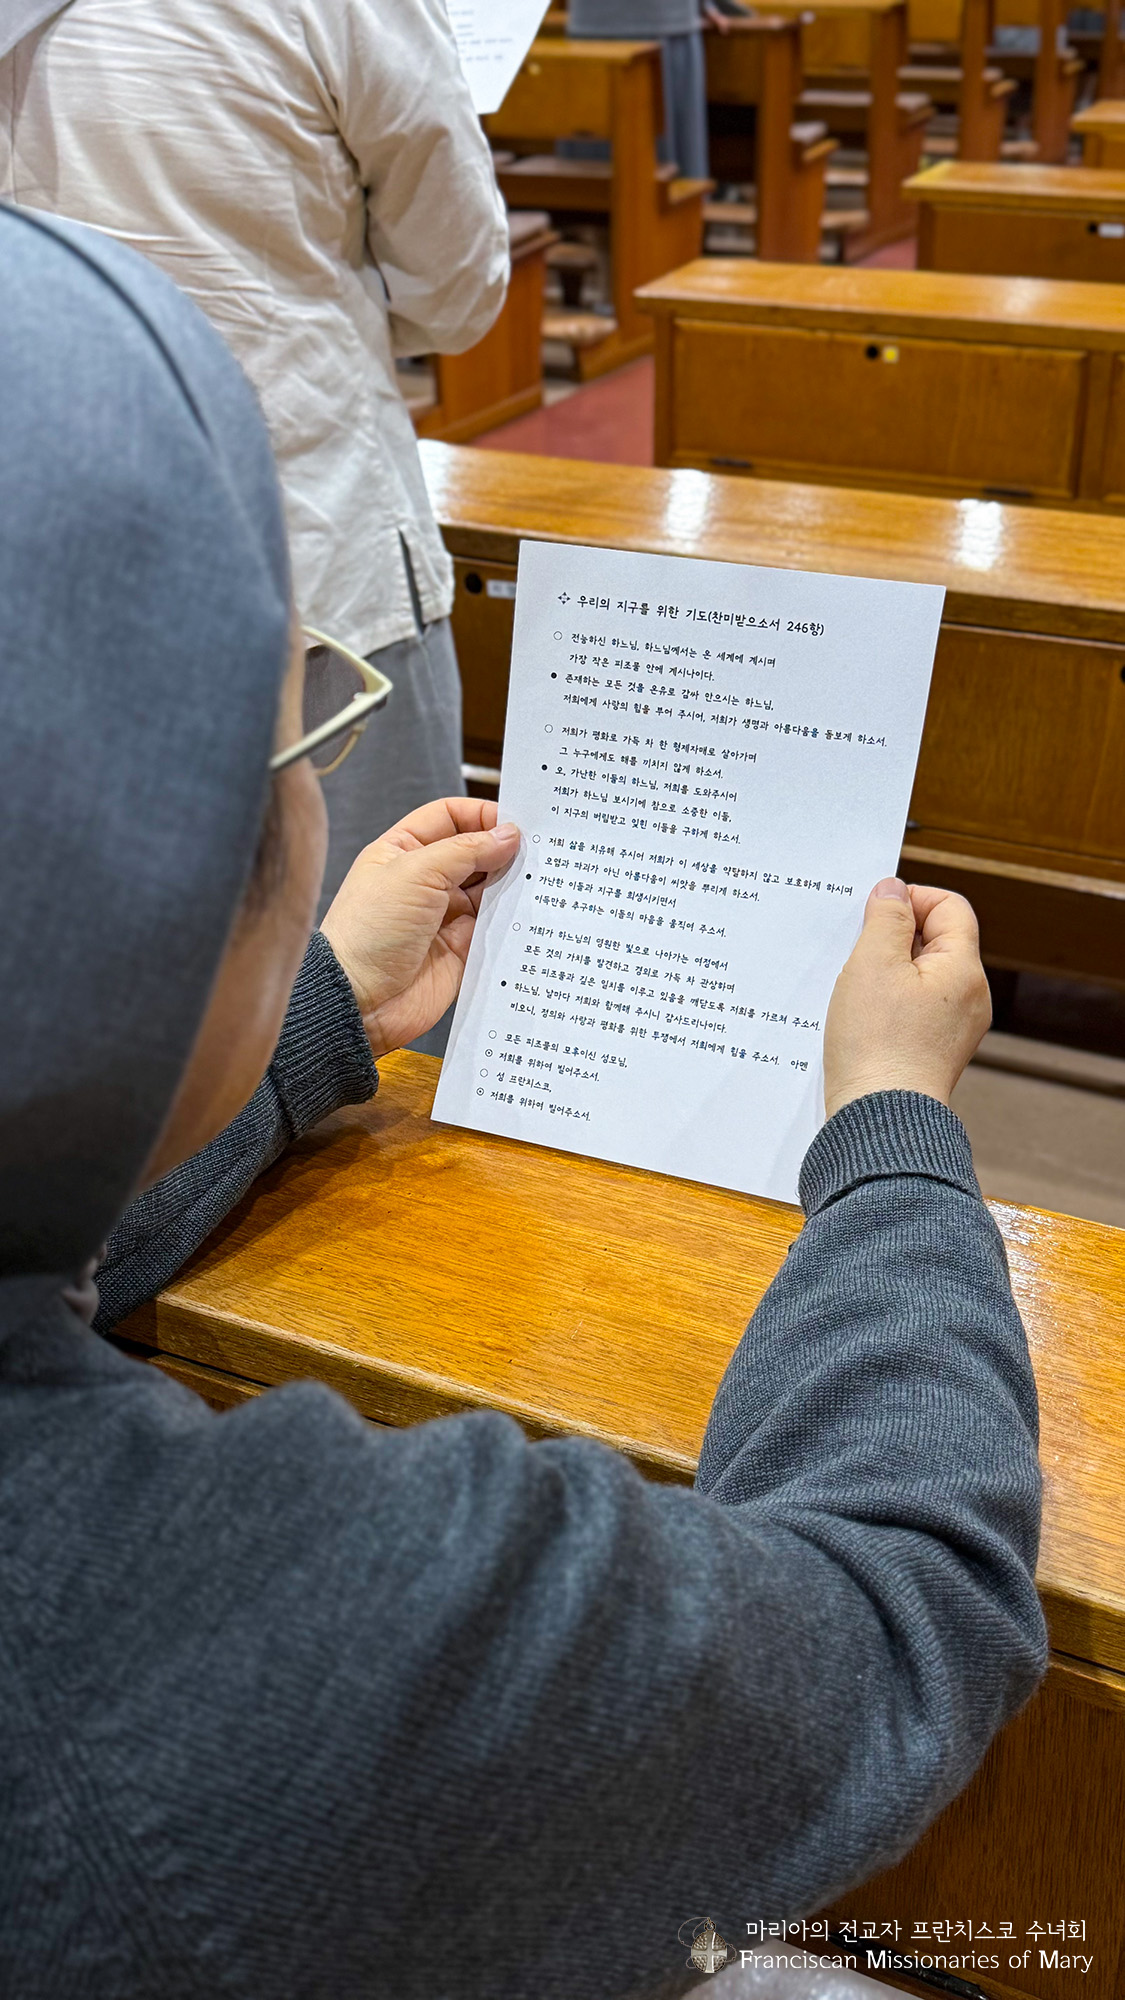 우리의 지구를 위한 기도(찬미받으소서 246항)
○ 전능하신 하느님, 하느님께서는 온 세계에 계시며
가장 작은 피조물 안에 계시나이다.
● 존재하는 모든 것을 온유로 감싸 안으시는 하느님,
저희에게 사랑의 힘을 부어 주시어, 저희가 생명과 아름다움을 돌보게 하소서.
○ 저희가 평화로 가득 차 한 형제자매로 살아가며
그 누구에게도 해를 끼치지 않게 하소서.
● 오, 가난한 이들의 하느님, 저희를 도와주시어
저희가 하느님 보시기에 참으로 소중한 이들,
이 지구의 버림받고 잊힌 이들을 구하게 하소서.
○ 저희 삶을 치유해 주시어 저희가 이 세상을 약탈하지 않고 보호하게 하시며
오염과 파괴가 아닌 아름다움의 씨앗을 뿌리게 하소서.
● 가난한 이들과 지구를 희생시키면서
이득만을 추구하는 이들의 마음을 움직여 주소서.
○ 저희가 하느님의 영원한 빛으로 나아가는 여정에서
모든 것의 가치를 발견하고 경외로 가득 차 관상하며
모든 피조물과 깊은 일치를 이루고 있음을 깨닫도록 저희를 가르쳐 주소서.
● 하느님, 날마다 저희와 함께해 주시니 감사드리나이다.
비오니, 정의와 사랑과 평화를 위한 투쟁에서 저희에게 힘을 주소서. 아멘
○ 모든 피조물의 모후이신 성모님,
⊙ 저희를 위하여 빌어주소서.
○ 성 프란치스코,
⊙ 저희를 위하여 빌어주소서.
마리아의 전교자 프란치스코 수녀회
Franciscan Missionaries of Mary